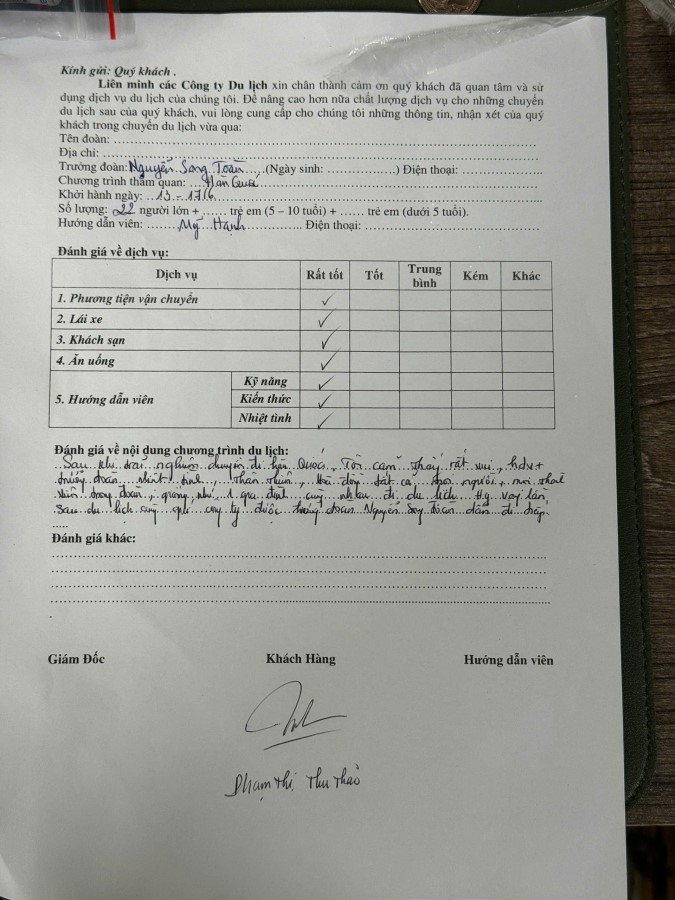 Kính gửi: Quý khách .
Liên minh các Công ty Du lịch xin chân thành cảm ơn quý khách đã quan tâm và sử
dụng dịch vụ du lịch của chúng tôi. Để nâng cao hơn nữa chất lượng dịch vụ cho những chuyến
du lịch sau của quý khách, vui lòng cung cấp cho chúng tôi những thông tin, nhận xét của quý
khách trong chuyến du lịch vừa qua:
Tên đoàn:
Địa chỉ:
Trưởng đoàn: Nguyễn Song Toàn (Ngày sinh: ) Điện thoại:
Chương trình thăm quan: Hàn Quốc
Khởi hành ngày: 13 - 17/6
Số lượng: 22 người lớn + ...... trẻ em (5 – 10 tuổi) + ...... trẻ em (dưới 5 tuổi).
Hướng dẫn viên: Mỹ Hạnh Điện thoại:
Đánh giá về dịch vụ:
Dịch vụ Rất tốt Tốt Trung bình Kém Khác
1. Phương tiện vận chuyển ✓
2. Lái xe ✓
3. Khách sạn ✓
4. Ăn uống ✓
5. Hướng dẫn viên Kỹ năng ✓
Kiến thức ✓
Nhiệt tình ✓
Đánh giá về nội dung chương trình du lịch:
Sau khi trải nghiệm chuyến đi Hàn Quốc, Tôi cảm thấy rất vui, hdv +
trưởng đoàn nhiệt tình, thân thiện, tất cả mọi người,
trong đoàn, giống như 1 gia đình cùng nhau đi du lịch. Hy vọng lần
sau du lịch cùng công ty được trưởng đoàn Nguyễn Song Toàn dẫn đi tiếp.
Đánh giá khác:
Giám Đốc Khách Hàng Hướng dẫn viên
Phạm Thị Thu Thảo